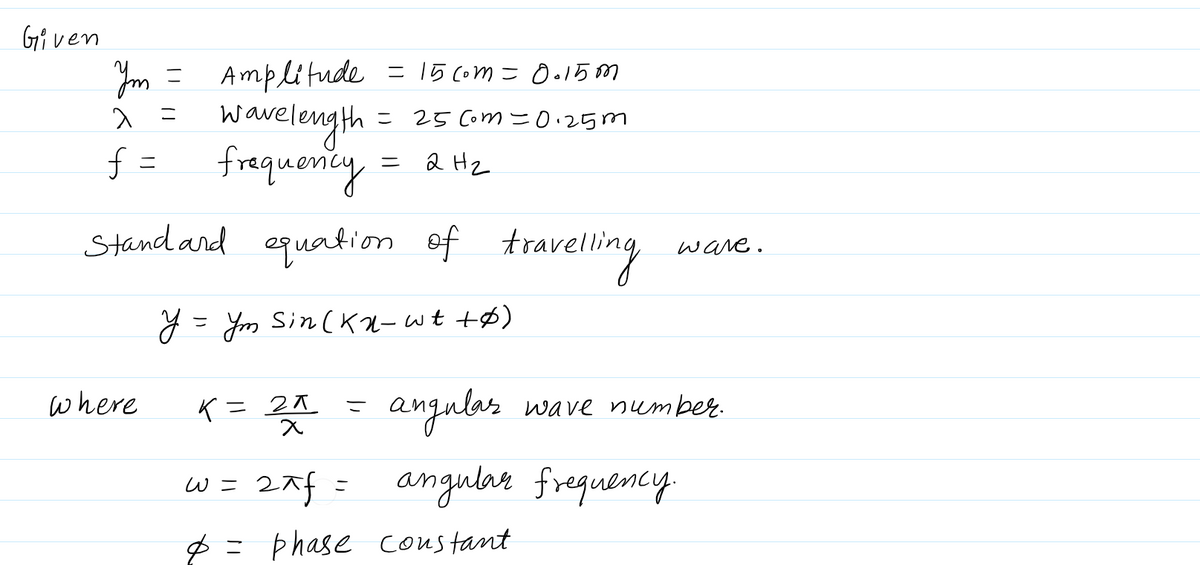 Given
ym = Amplitude = 15 com = 0.15 m
λ = wavelength = 25 com = 0.25 m
f = frequency = 2 Hz
Standard equation of travelling wave.
y = ym Sin (Kx - wt + ϕ)
where K = 2π/λ = angular wave number.
ω = 2πf = angular frequency.
ϕ = phase constant